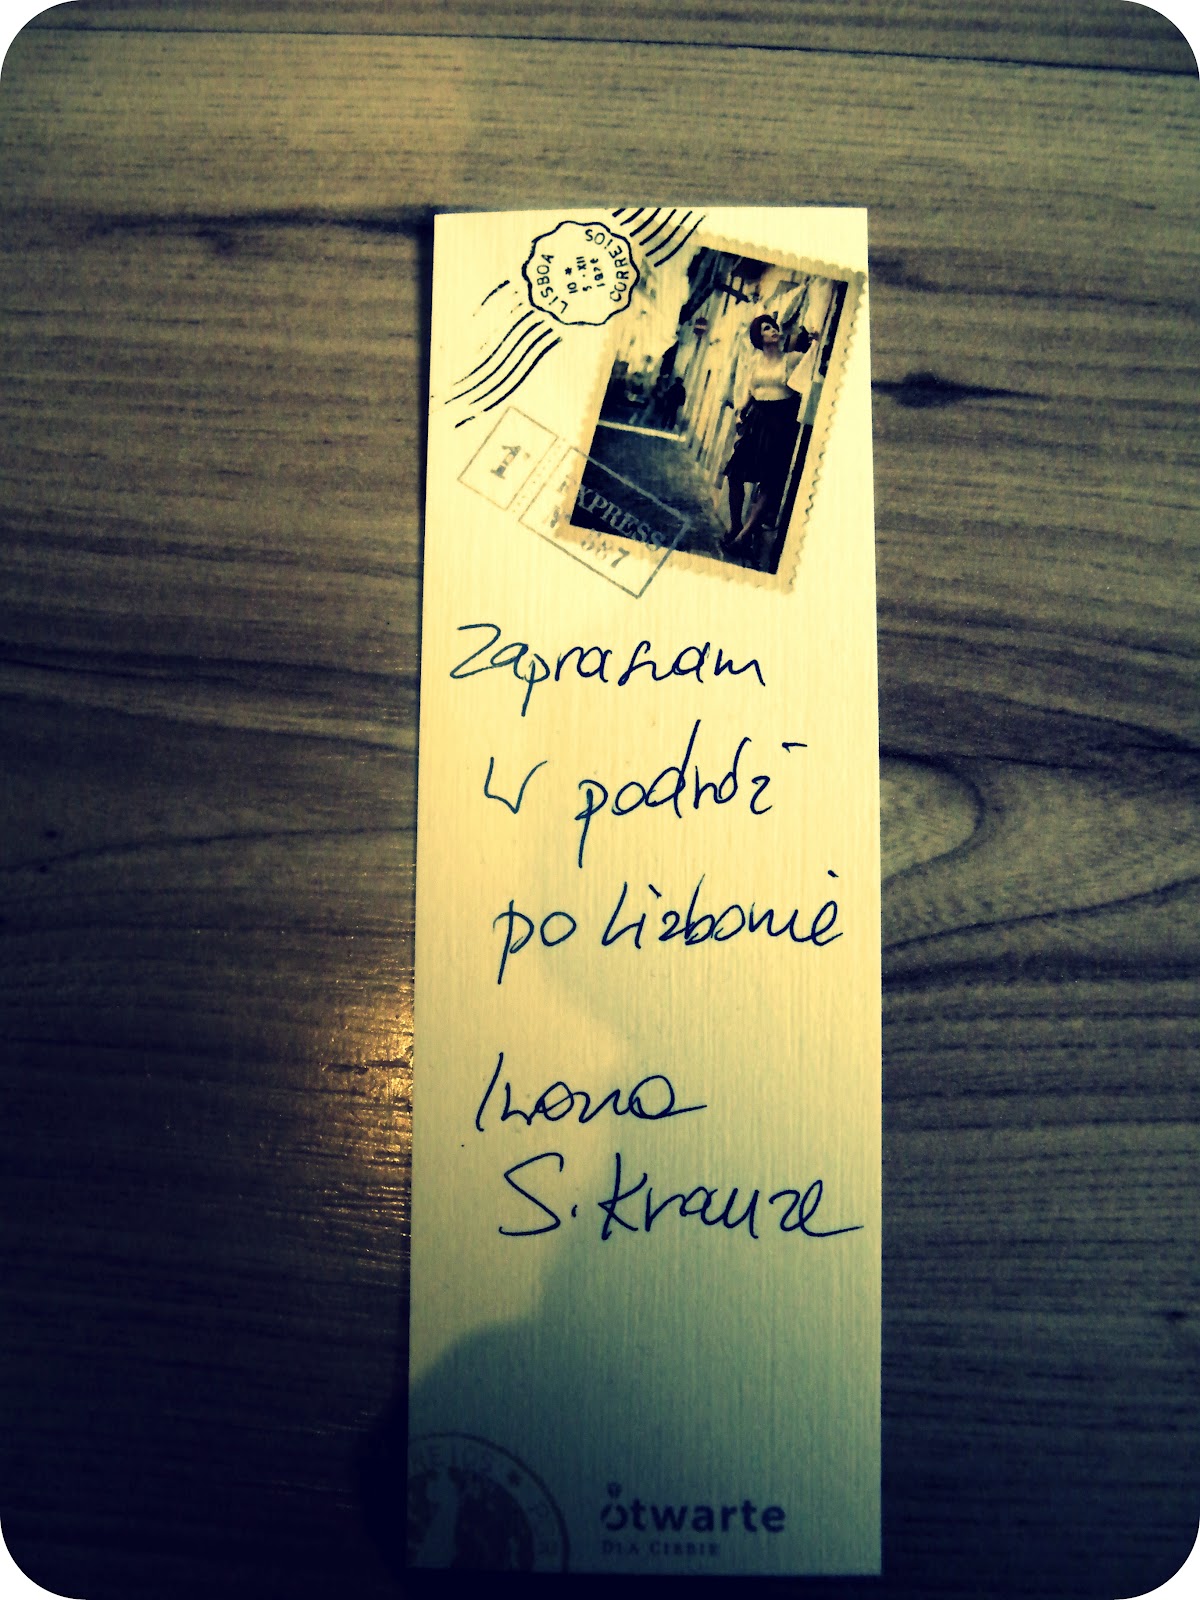 LISBOA CORREIOS
10 * 5 · XII
1
EXPRESS
Nº 587
Zapraszam
w podróż
po Lizbonie
Iwona
S. Krauze
otwarte
DLA CIEBIE